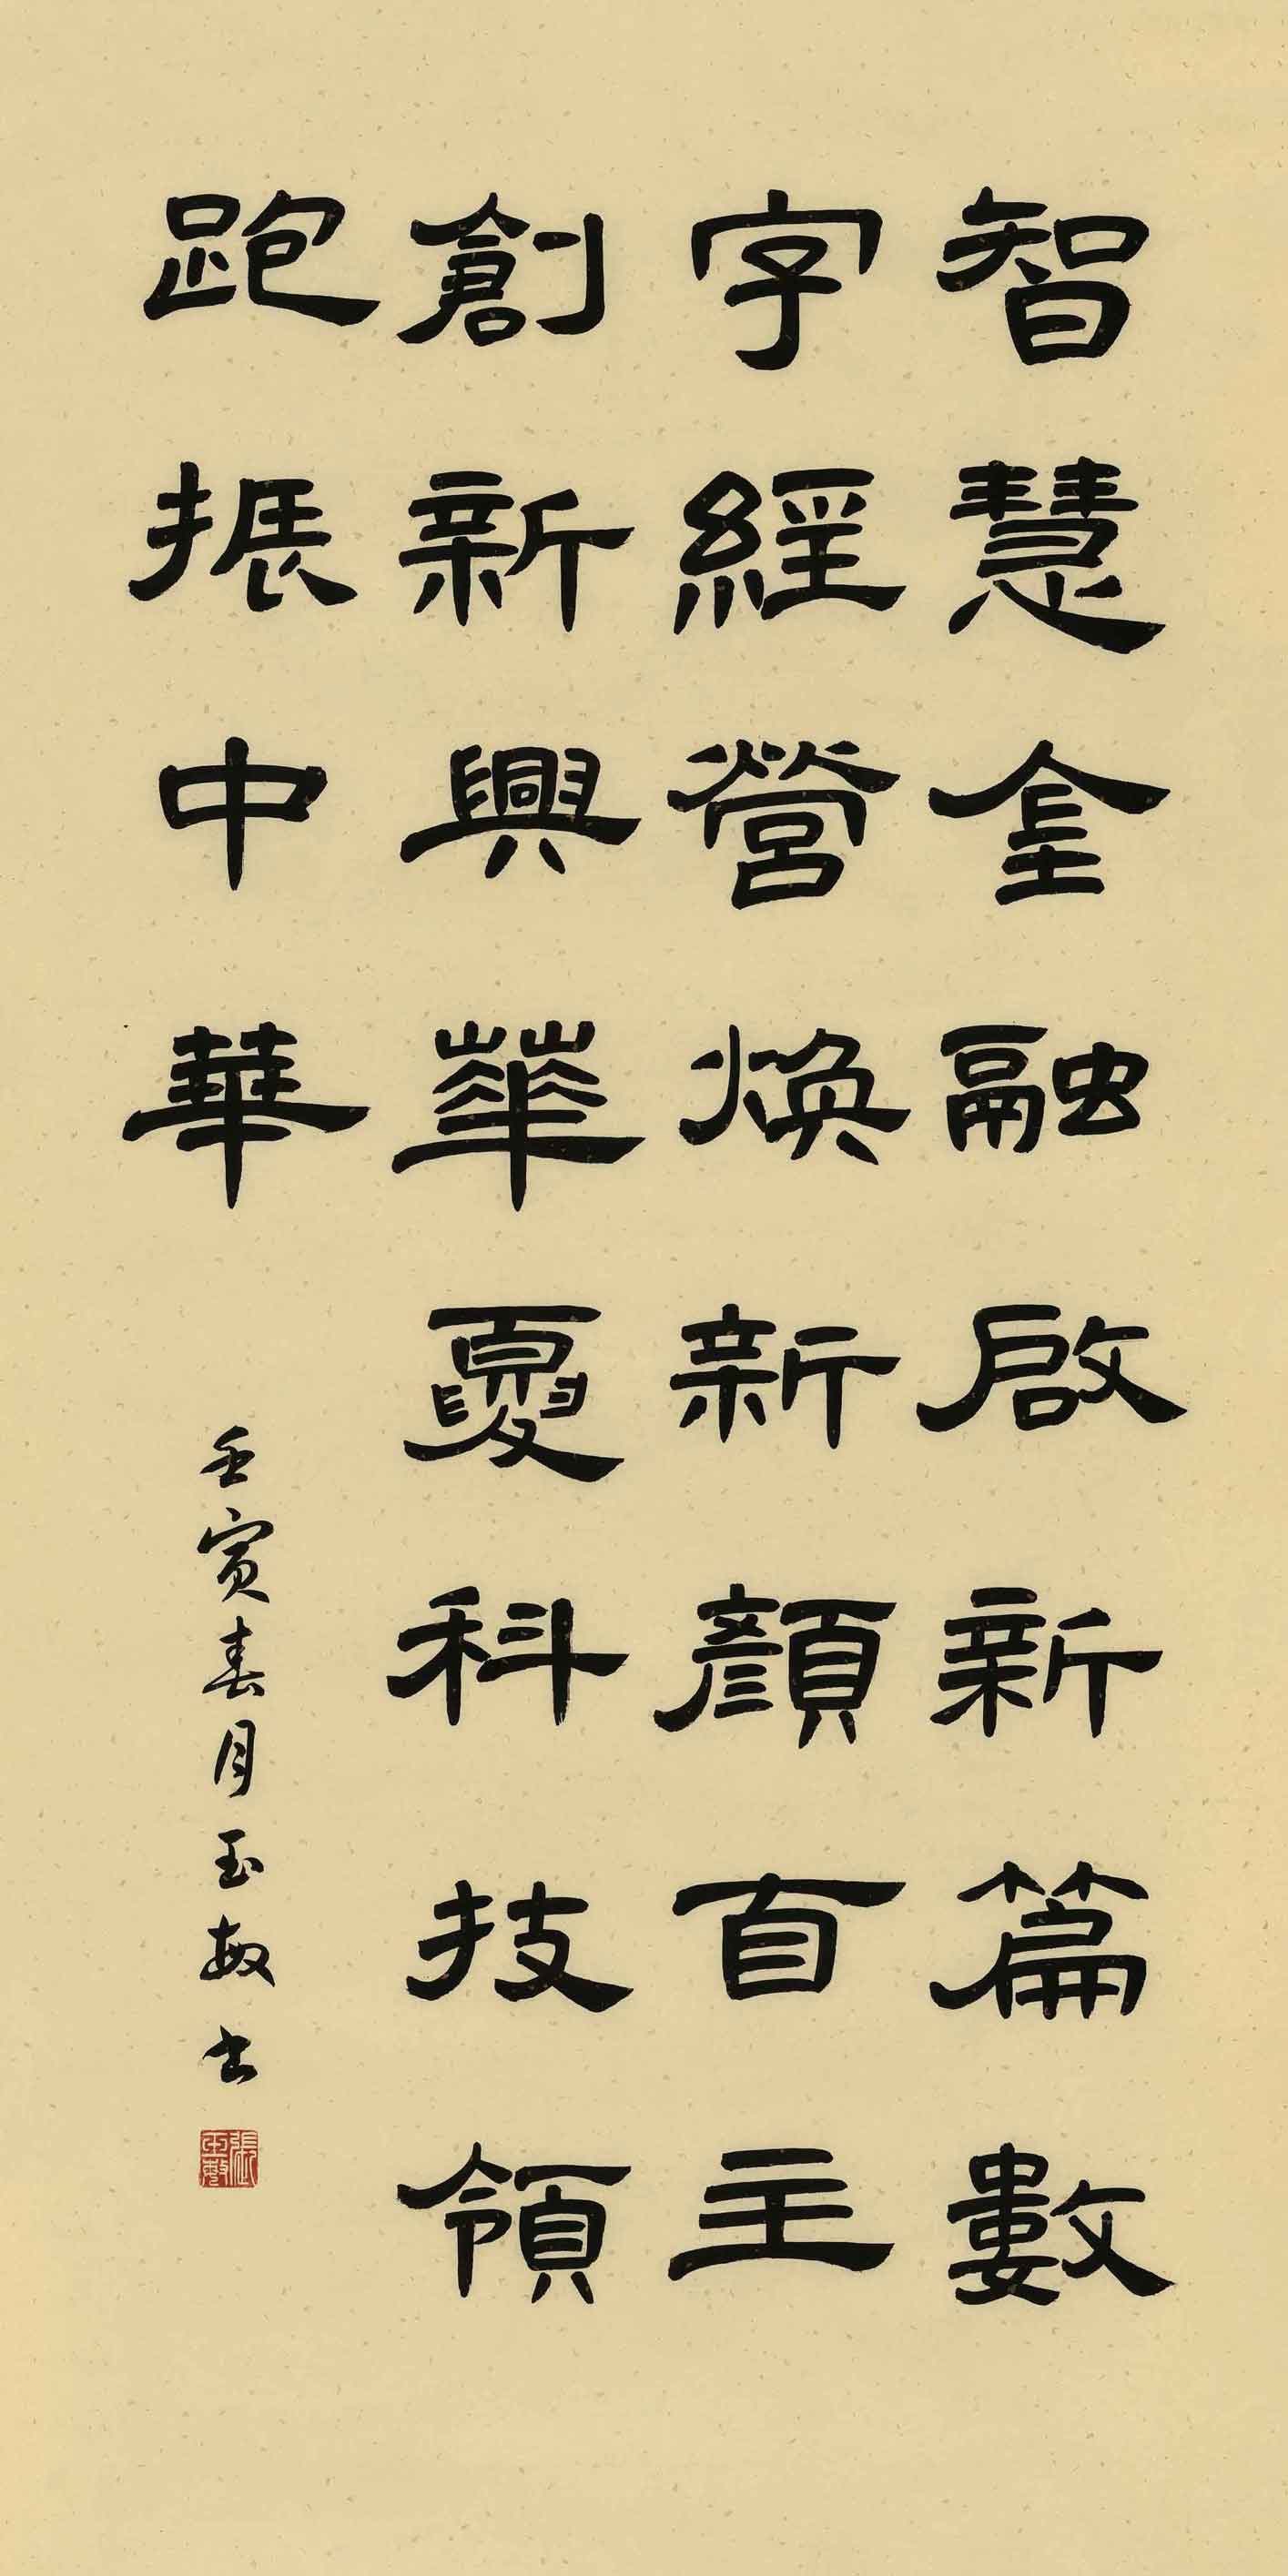 智慧金融啟新篇數
字經營煥新顏百主
創新興華夏科技領
跑振中華
壬寅春月玉敏书
張玉敏